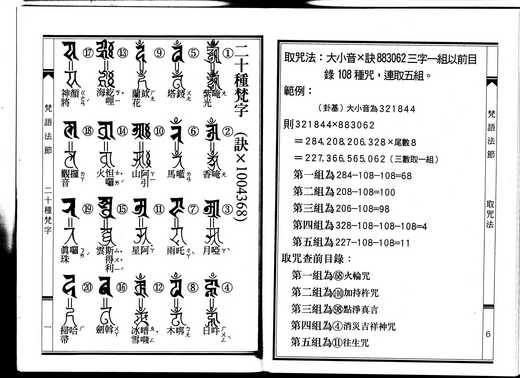 二十種梵字 (訣×1004368)
① 唵 紫光
② 唵 香
③ 啞 月
④ 吽 白
⑤ 鍐 塔
⑥ 嚂 馬
⑦ 吒 雨
⑧ 木
⑨ 蘭花
⑩ 阿引 山
⑪ 阿 星
⑫ 冰雪
⑬ 海
⑭ 怛囉 火
⑮ 斯得利 雲
⑯ 劍
⑰ 神將
⑱ 囉 觀音
⑲ 囉 眞珠
⑳ 哈 掃帚
梵語法節
二十種梵字
一
取咒法：大小音×訣883062三字一組以前目
錄108種咒，連取五組。
範例：
（卦基）大小音為321844
則321844×883062
＝284,208,206,328×尾數8
＝227,366,565,062（三數取一組）
第一組為284－108－108＝68
第二組為208－108＝100
第三組為206－108＝98
第四組為328－108－108－108＝4
第五組為227－108－108＝11
取咒查前目錄：
第一組為68火輪咒
第二組為100加持杵咒
第三組為98點淨真言
第四組為④消災吉祥神咒
第五組為⑪往生咒
梵語法節
取咒法
6